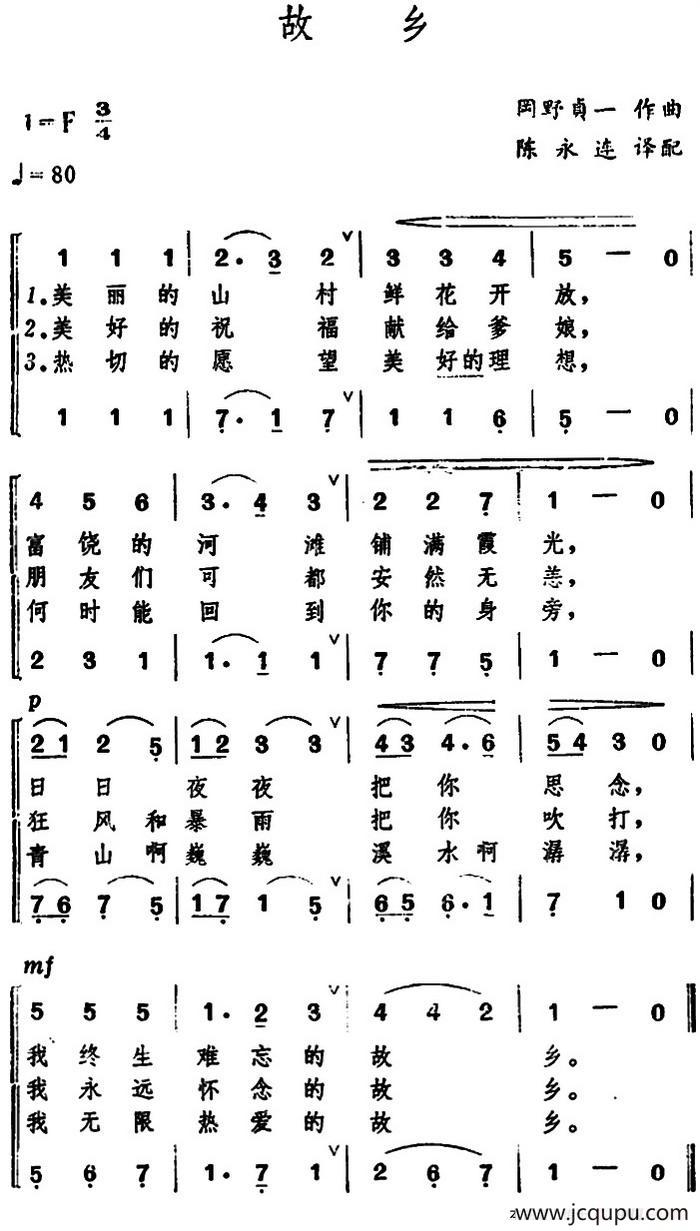 故 乡
1=F 3/4
岡野貞一 作曲
♩=80
陈永连 译配
1 1 1 | 2. 3 2 | 3 3 4 | 5 — 0 |
1.美丽的山村鲜花开放，
2.美好的祝福献给爹娘，
3.热切的愿望美好的理想，
1 1 1 | 7. 1 7 | 1 1 6 | 5 — 0 |
4 5 6 | 3. 4 3 | 2 2 7 | 1 — 0 |
富饶的河滩铺满霞光，
朋友们可都安然无恙，
何时能回到你的身旁，
2 3 1 | 1. 1 1 | 7 7 5 | 1 — 0 |
p
21 2 5 | 12 3 3 | 43 4. 6 | 54 3 0 |
日日夜夜把你思念，
狂风和暴雨把你吹打，
青山啊巍巍溪水啊潺潺，
76 7 5 | 17 1 5 | 65 6. 1 | 7 1 0 |
mf
5 5 5 | 1. 2 3 | 4 4 2 | 1 — 0 ‖
我终生难忘的故乡。
我永远怀念的故乡。
我无限热爱的故乡。
5 6 7 | 1. 7 1 | 2 6 7 | 1 — 0
www.jcqupu.com